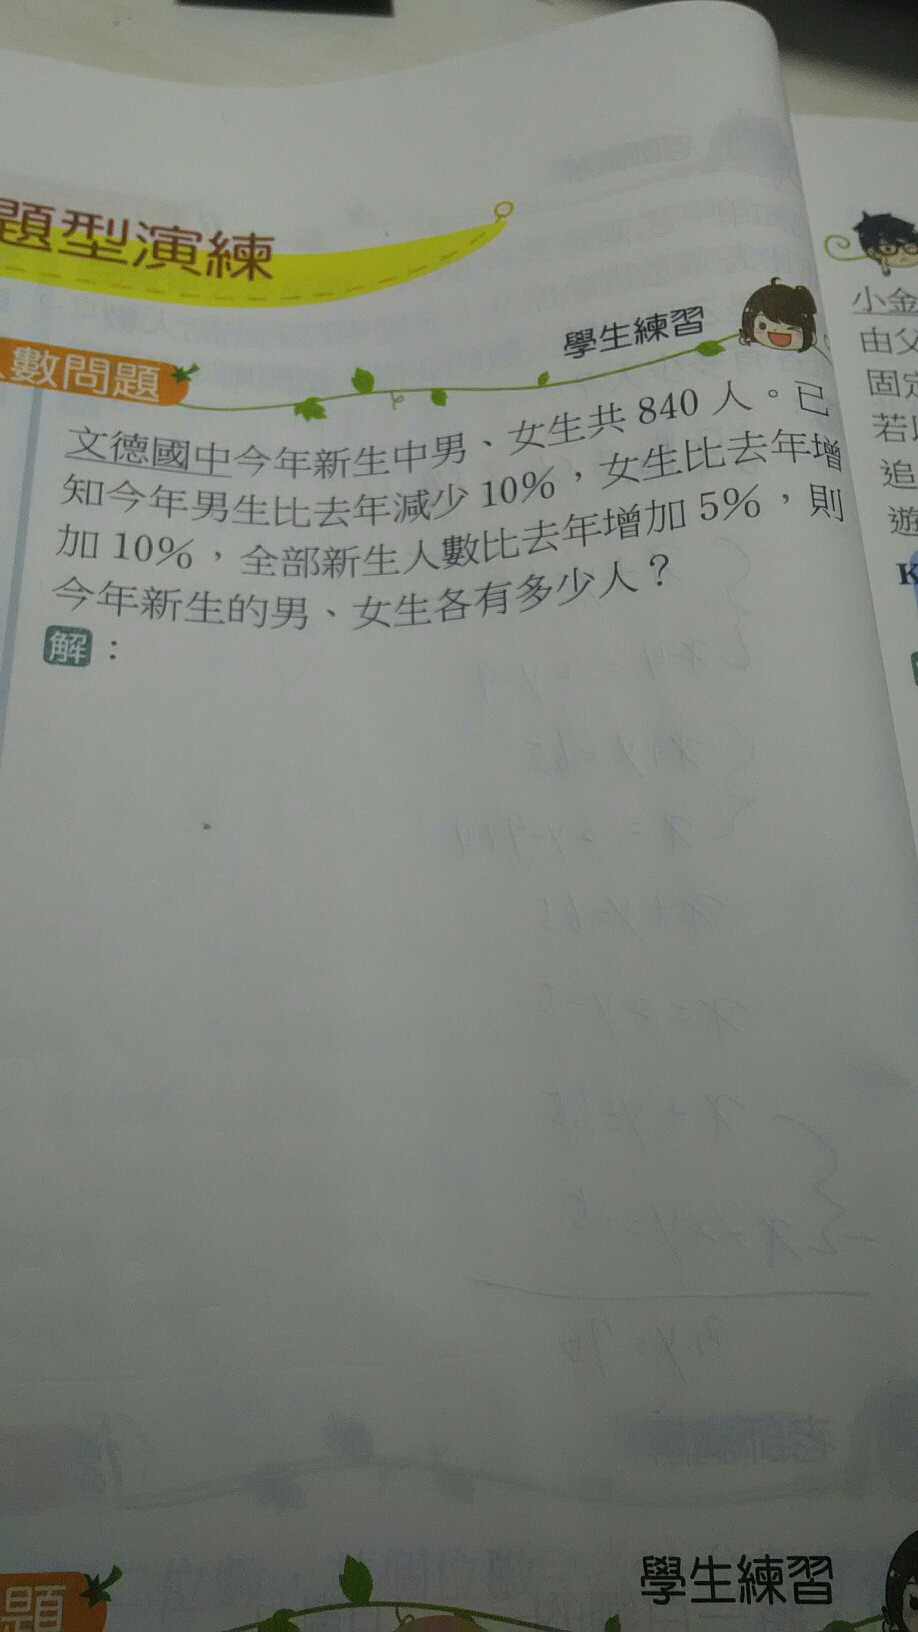 題型演練
學生練習
數問題
文德國中今年新生中男、女生共 840 人。已
知今年男生比去年減少 10%，女生比去年增
加 10%，全部新生人數比去年增加 5%，則
今年新生的男、女生各有多少人？
解：
小金
由父
固定
追
遊
學生練習
題